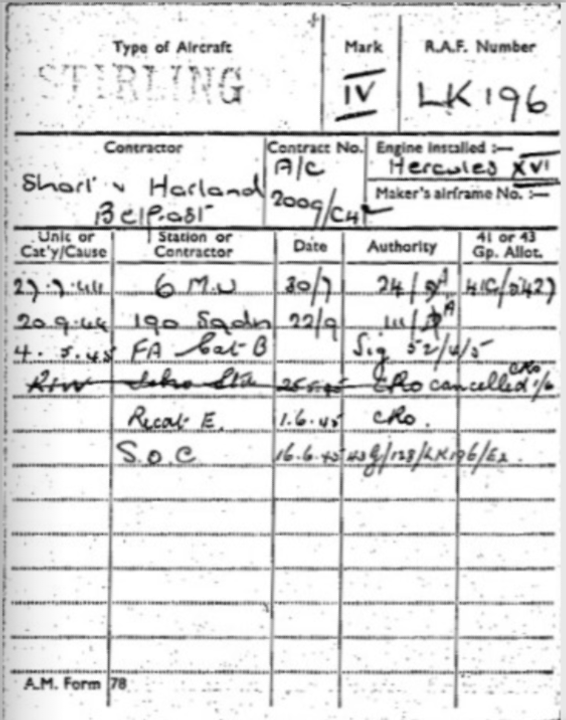 Type of Aircraft Mark R.A.F. Number
STIRLING IV LK196
Contractor Contract No. Engine installed :—
Short & Harland A/C Hercules XVI
Belfast 2009/C42 Maker's airframe No. :—
Unit or Cat'y/Cause Station or Contractor Date Authority 41 or 43 Gp. Allot.
27.7.44 6 M.U 30/7 24/ 41G/
20.9.44 190 Sqdn 22/9
4.5.45 FA Cat B Sig 52/4/5
CRO cancelled
Recat E. 1.6.45 CRO.
S.O.C 16.6.45 43g/128/LK196/E2.
A.M. Form 78